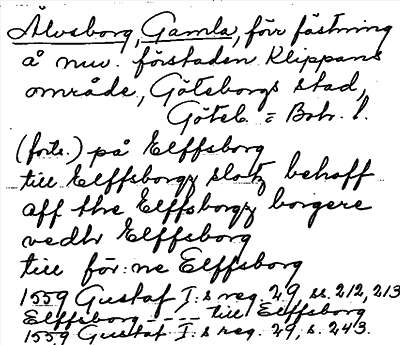 Älvsborg, Gamla, förr fästning
å nuv. förstaden Klippans
område, Göteborgs stad,
Göteb. = Boh. l.
(forts.) på Elffsborg
till Elffsborgz slotz behoff
aff the Elffsborgz borgere
vedhr Elffsborg
till för:ne Elffsborg
1559 Gustaf I:s reg. 29 ss. 212, 213
Elffsborg - - - - till Elffsborg
1559 Gustaf I:s reg. 29, s. 243.